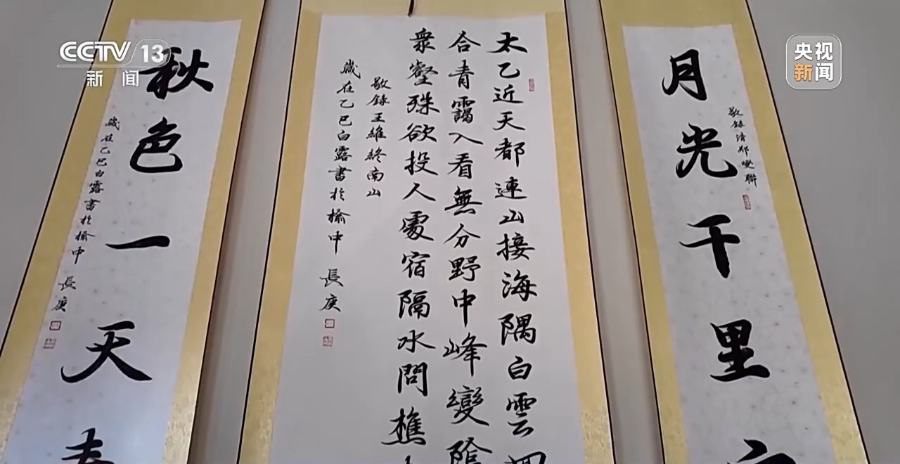 CCTV 13
新闻
央视
新闻
月光千里
敬錄清鄭燮聯
太乙近天都連山接海隅白雲
合青靄入看無分野中峰變陰
衆壑殊欲投人處宿隔水問樵
敬錄王維終南山
歲在乙巳白露書於榆中 長庚
秋色一天
歲在乙巳白露書於榆中 長庚